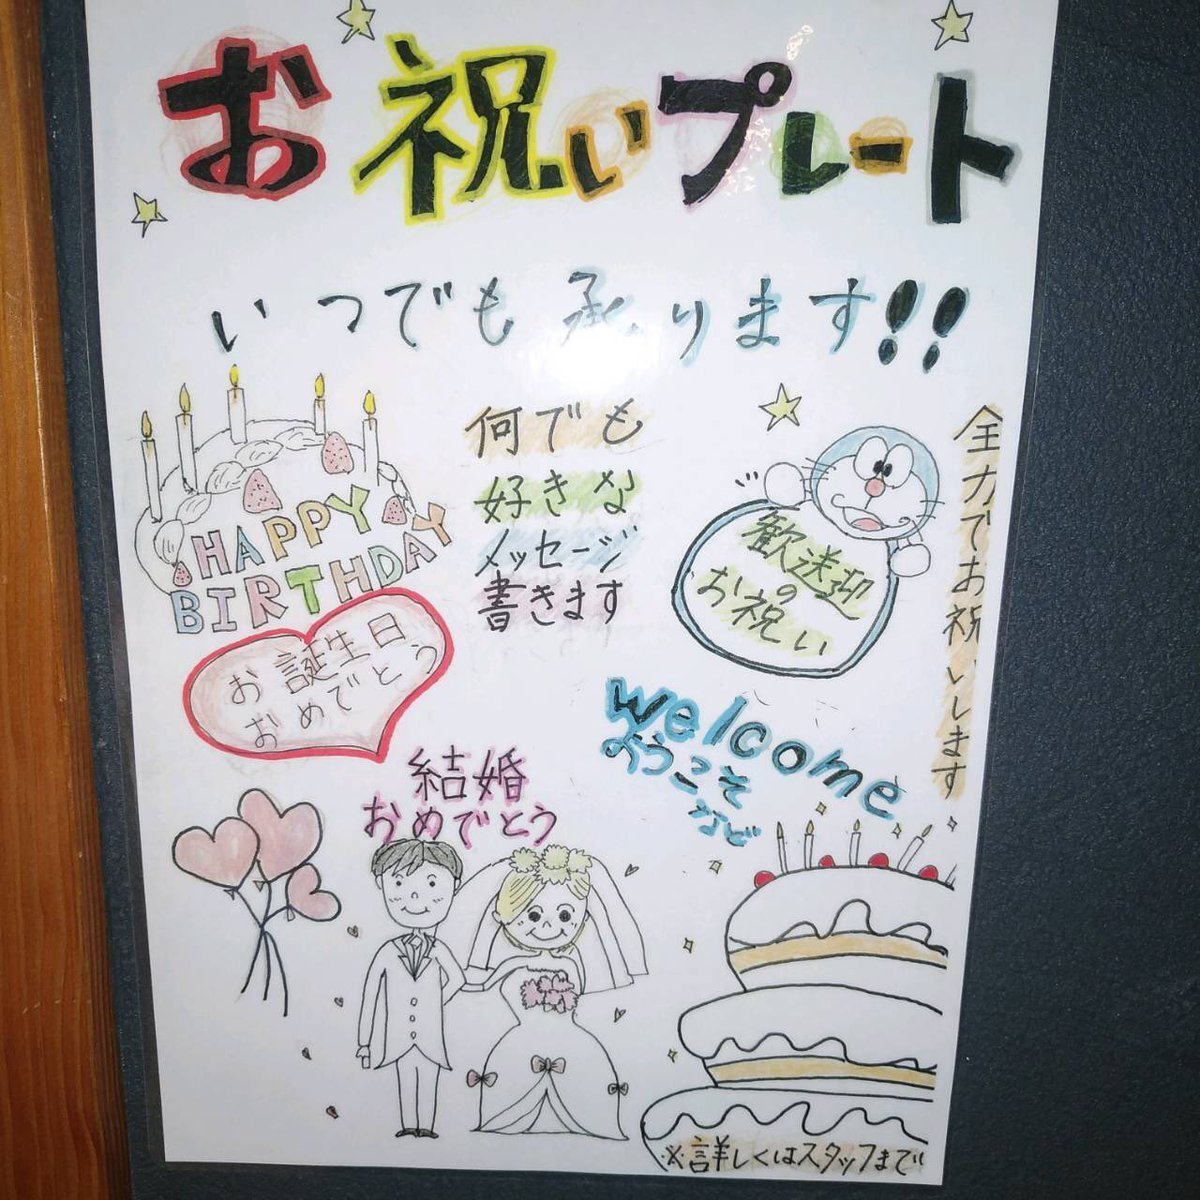 お祝いプレート
いつでも承ります!!
HAPPY
BIRTHDAY
お誕生日
おめでとう
何でも
好きな
メッセージ
書きます
歓送迎
の
お祝い
全力でお祝いします
welcome
ようこそ
など
結婚
おめでとう
※詳しくはスタッフまで